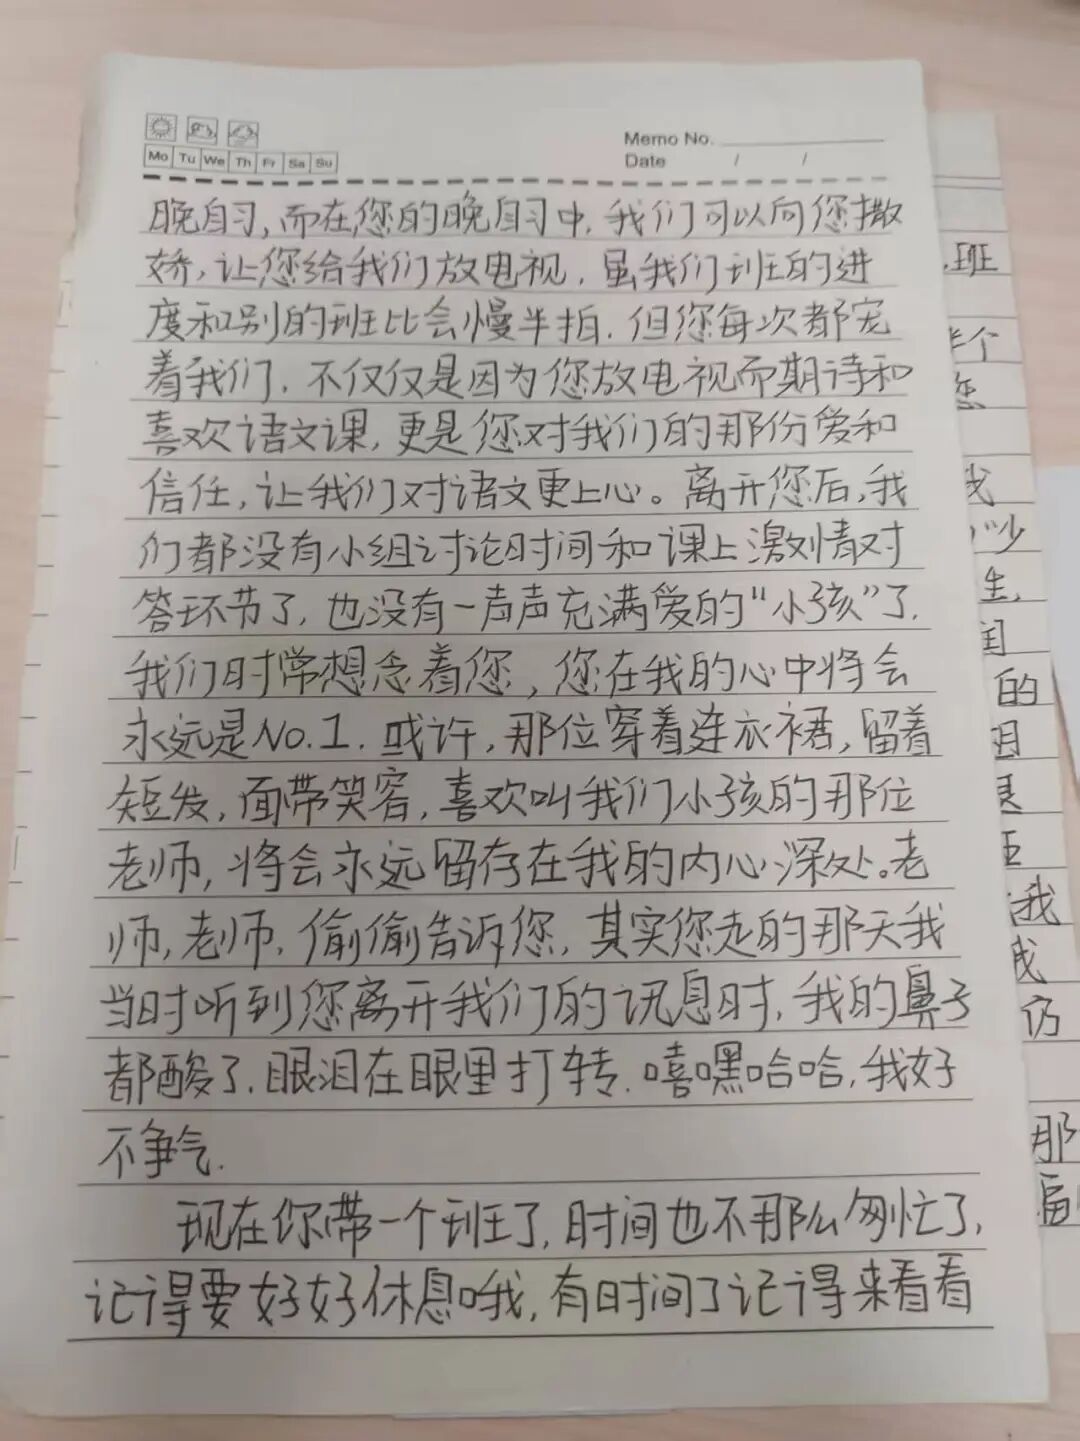 Mo Tu We Th Fr Sa Su
Memo No.
Date / /
晚自习,而在您的晚自习中,我们可以向您撒
娇,让您给我们放电视,虽我们班的进
度和别的班比会慢半拍.但您每次都宠
着我们.不仅仅是因为您放电视而期待和
喜欢语文课,更是您对我们的那份爱和
信任,让我们对语文更上心。离开您后,我
们都没有小组讨论时间和课上激情对
答环节了,也没有一声声充满爱的“小孩”了.
我们时常想念着您,您在我的心中将会
永远是No.1.或许,那位穿着连衣裙,留着
短发,面带笑容,喜欢叫我们小孩的那位
老师,将会永远留存在我的内心深处。老
师,老师,偷偷告诉您,其实您走的那天我
当时听到您离开我们的讯息时,我的鼻子
都酸了.眼泪在眼里打转.嘻嘿哈哈,我好
不争气.
现在你带一个班了,时间也不那么匆忙了,
记得要好好休息哦,有时间了记得来看看
班
半个
您
我
少
生,
的
我
仍
那